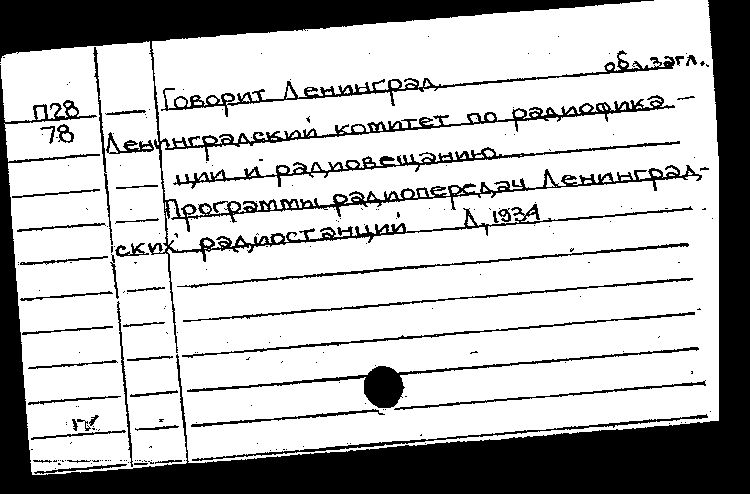 обл. загл.
П28 Говорит Ленинград
78 Ленинградский комитет по радиофика-
ции и радиовещанию.
Программы радиопередач Ленинград-
ских радиостанций Л, 1934.